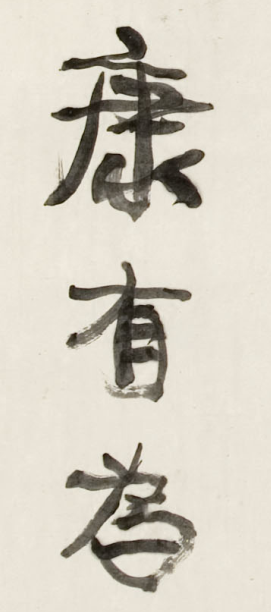 康有為